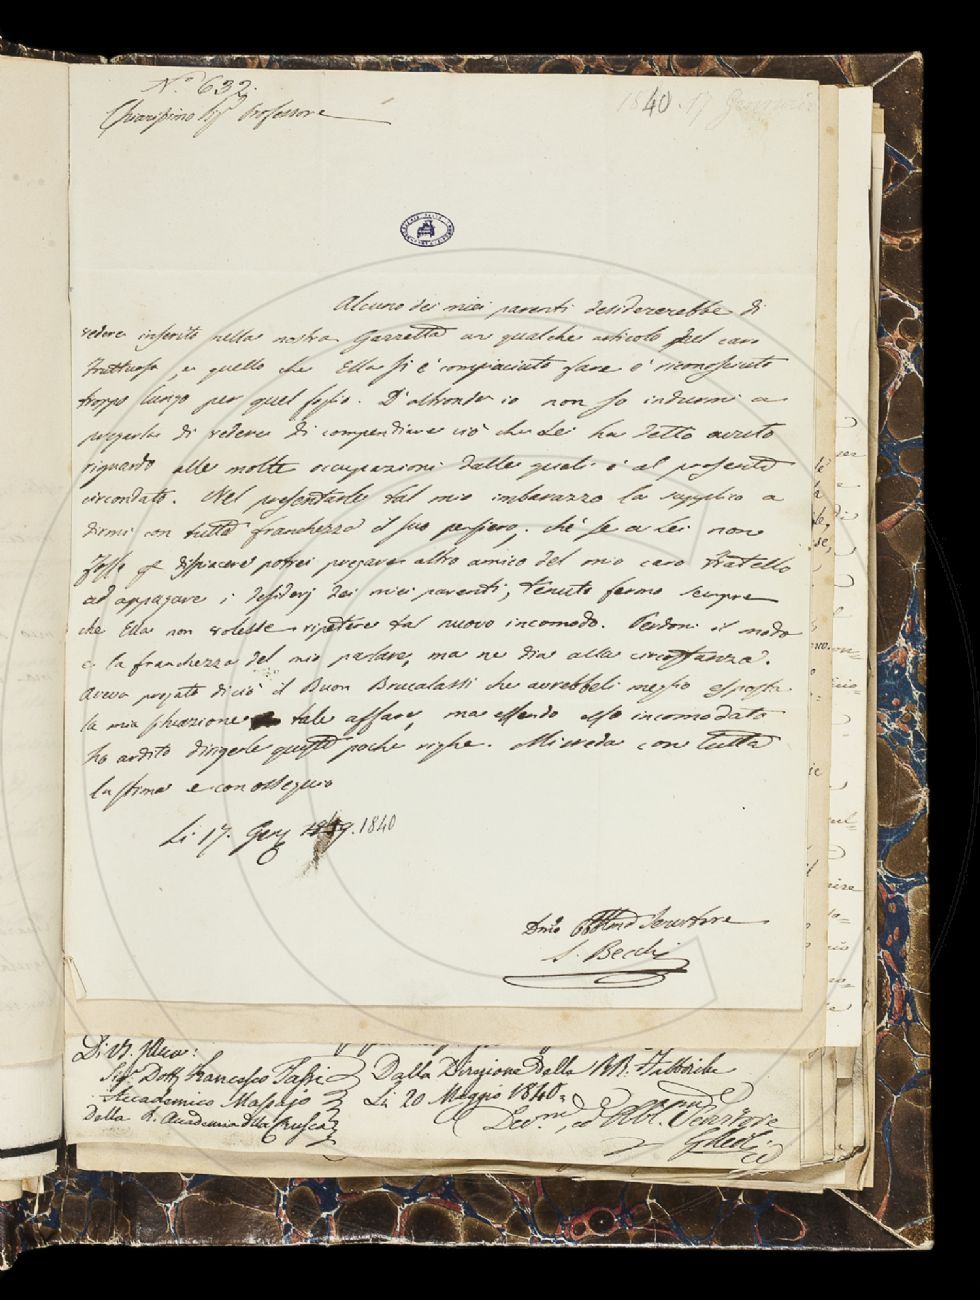 N.º 632.
Chiarissimo Sig.r Professore
1840. 17 Gennaio
Alcuno dei miei parenti desidererebbe di
vedere inserito nella nostra Gazzetta un qualche articolo del caro
Fruttuoso, e quello che Ella si è compiaciuto fare è riconosciuto
troppo lungo per quel foglio. D'altronde io non so indurmi a
pregarla di vedere di compendiare ciò che Lei ha detto avuto
riguardo alle molte occupazioni dalle quali è al presente
circondato. Nel presentarle tal mio imbarazzo la supplico a
dirmi con tutta franchezza il suo pensiero, chè se a Lei non
fosse di dispiacere potrei pregare altro amico del mio caro Fratello
ad appagare i desiderj dei miei parenti, tenuto fermo sempre
che Ella non volesse ripetere tal nuovo incomodo. Perdoni il modo
e la franchezza del mio parlare, ma ne dia alla circostanza.
Aveva pregato di ciò il Buon Brucalassi che avrebbeli meglio esposta
la mia situazione tale affare, ma essendo esso incomodato
ho ardito dirigerle queste poche righe. Mi creda con tutta
la stima e con ossequio
Li 17. Gen. 1839. 1840
Dmo Obbmo Servitore
S. Becchi
Li 20 Maggio 1840
Sig.r Dott. Francesco Tassi
Dalla Direzione della RR. Fabbriche
Accademico Massajo
Della R. Accademia della Crusca
Dev.mo, ed Obb. Servitore